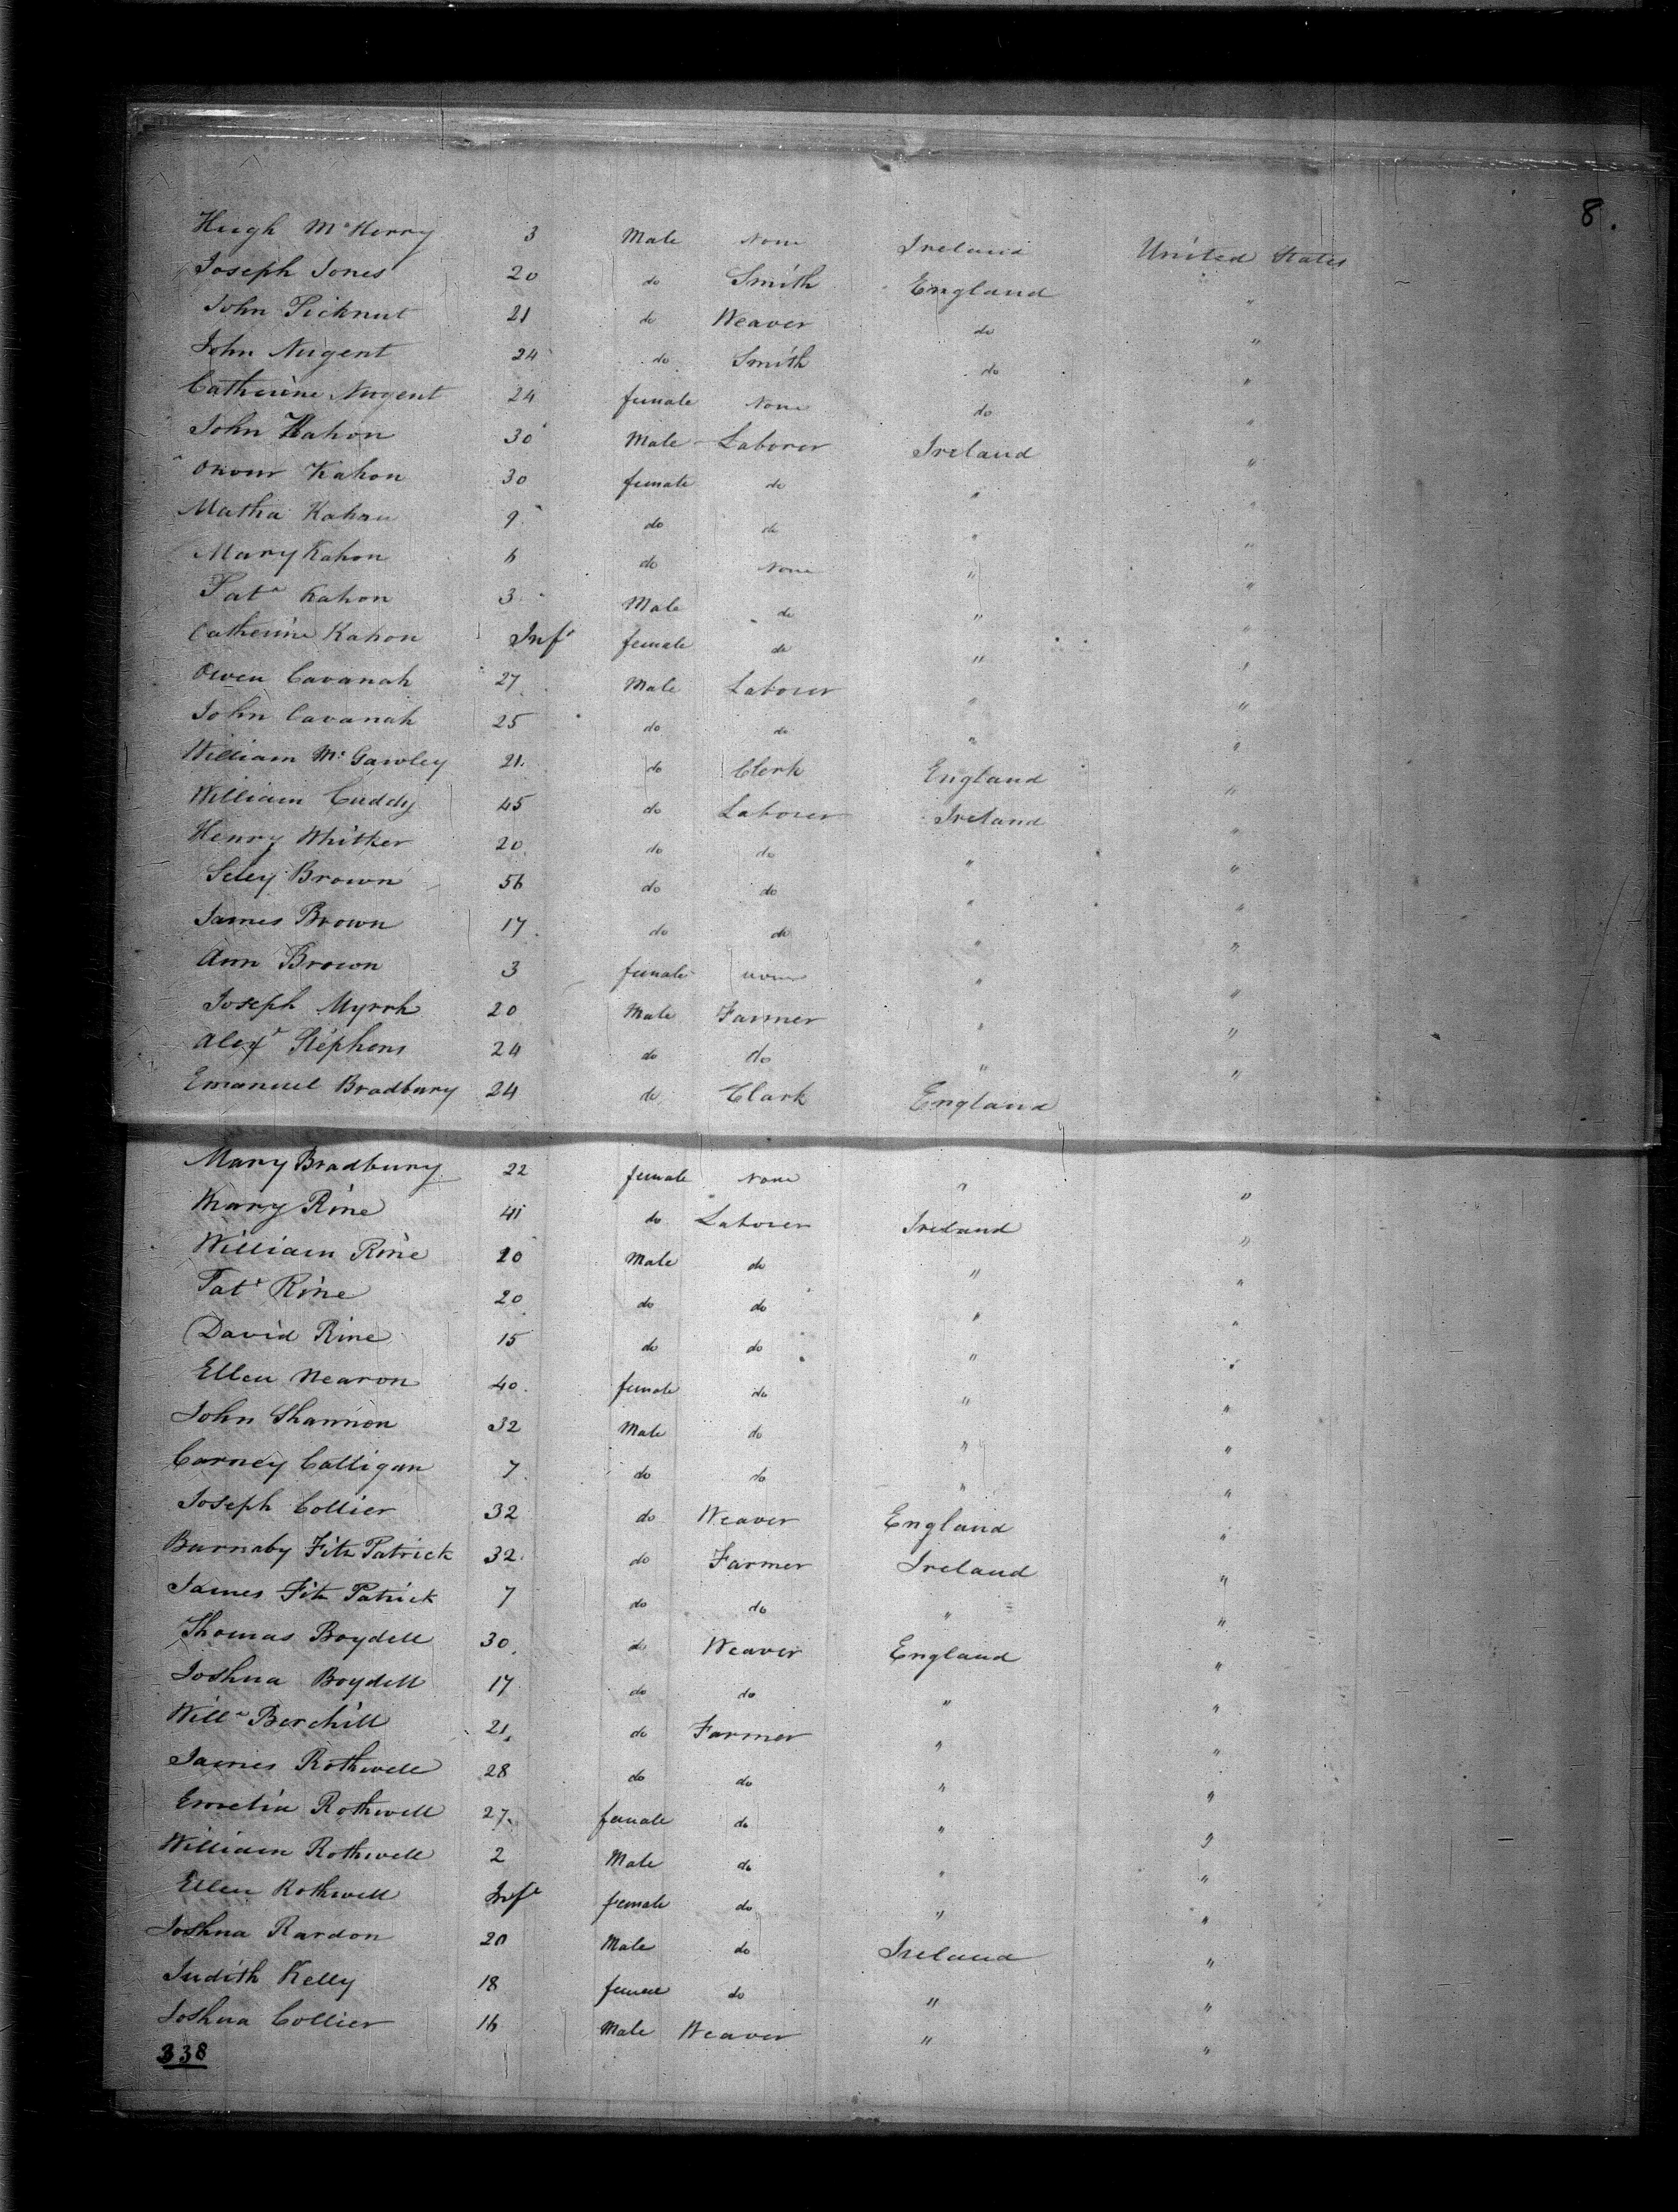 8.
Hugh McKerry 3 Male None Ireland United States
Joseph Jones 20 do Smith England "
John Ticknut 21 do Weaver do "
John Nugent 24 do Smith do "
Catherine Nugent 24 female None do "
John Kahon 30 Male Laborer Ireland "
Onour Kahon 30 female do " "
Matha Kahon 9 do do " "
Mary Kahon 6 do None " "
Patk Kahon 3 Male do " "
Catherine Kahon Inft female do " "
Owen Cavanah 27 Male Laborer " "
John Cavanah 25 do do " "
William Mc Gawley 21 do Clerk England "
William Cuddy 45 do Laborer Ireland "
Henry Whitker 20 do do " "
Brown 56 do do " "
James Brown 17 do do " "
Ann Brown 3 female none " "
Joseph Myrrh 20 Male Farmer " "
Alexr Stephens 24 do do " "
Emanuel Bradbury 24 do Clark England
Mary Bradbury 22 female None " "
Mary Rine 41 do Laborer Ireland "
William Rine 20 Male do " "
Patk Rine 20 do do " "
David Rine 15 do do " "
Ellen Nearon 40 female do " "
John Shannon 32 Male do " "
Carney Calligan 7 do do " "
Joseph Collier 32 do Weaver England "
Barnaby Fitz Patrick 32 do Farmer Ireland "
James Fitz Patrick 7 do do " "
Thomas Boydell 30 do Weaver England "
Joshua Boydell 17 do do " "
Willm Berchill 21 do Farmer " "
James Rothwell 28 do do " "
Rothwell 27 female do " "
William Rothwell 2 Male do " "
Ellen Rothwell Inft female do " "
Joshua Rardon 20 Male do Ireland "
Judith Kelly 18 female do " "
Joshua Collier 16 Male Weaver " "
338